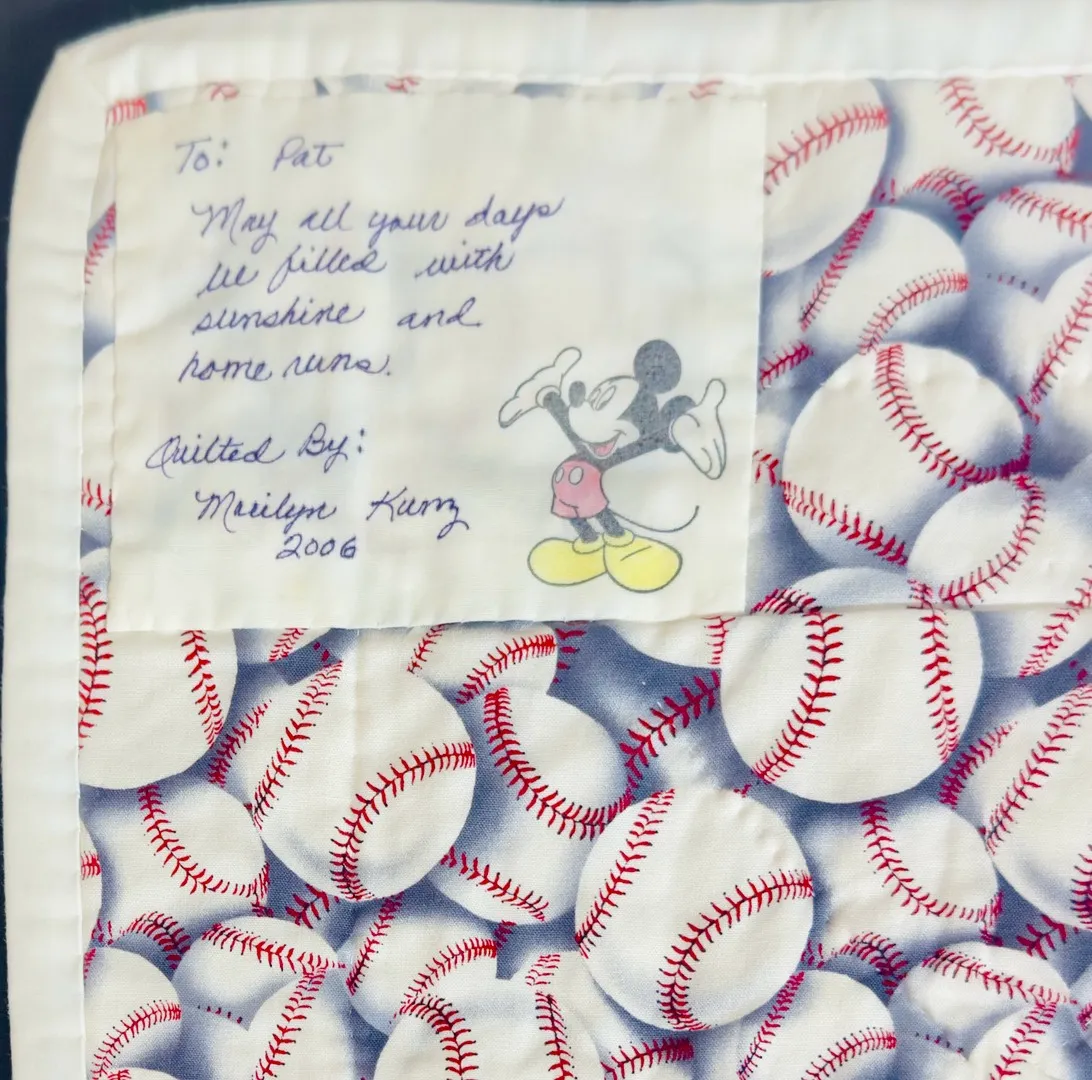 To: Pat
May all your days
be filled with
sunshine and
home runs.
Quilted By:
Marilyn Kunz
2006